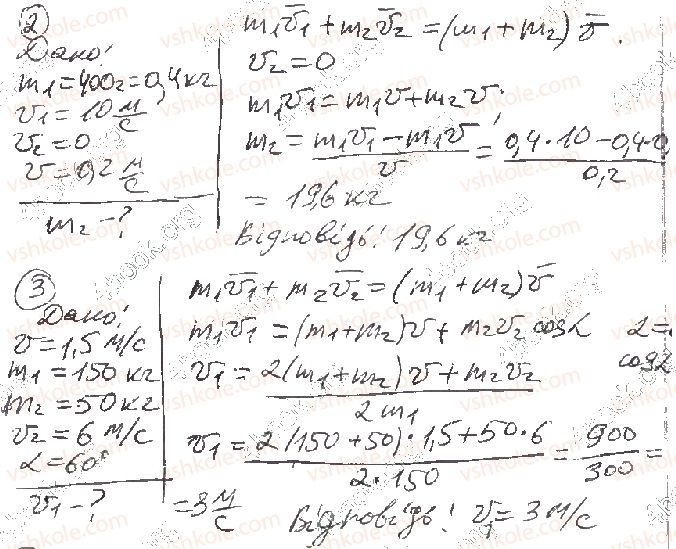 2
Дано:
m₁=400г=0,4кг
v₁=10 м/с
v₂=0
v=0,2 м/с
m₂-?
m₁v̄₁+m₂v̄₂=(m₁+m₂)v̄.
v₂=0
m₁v₁=m₁v+m₂v;
m₂=(m₁v₁-m₁v)/v=(0,4·10-0,4·0)/0,2
=19,6кг
Відповідь: 19,6кг
3
Дано:
v=1,5м/с
m₁=150кг
m₂=50кг
v₂=6м/с
α=60°
v₁-?
m₁v̄₁+m₂v̄₂=(m₁+m₂)v̄
m₁v₁=(m₁+m₂)v+m₂v₂cosα α=
v₁=(2(m₁+m₂)v+m₂v₂)/(2m₁) cosα
v₁=(2(150+50)·1,5+50·6)/(2·150)=900/300=
=3 м/с Відповідь: v₁=3м/с
vshkole.com